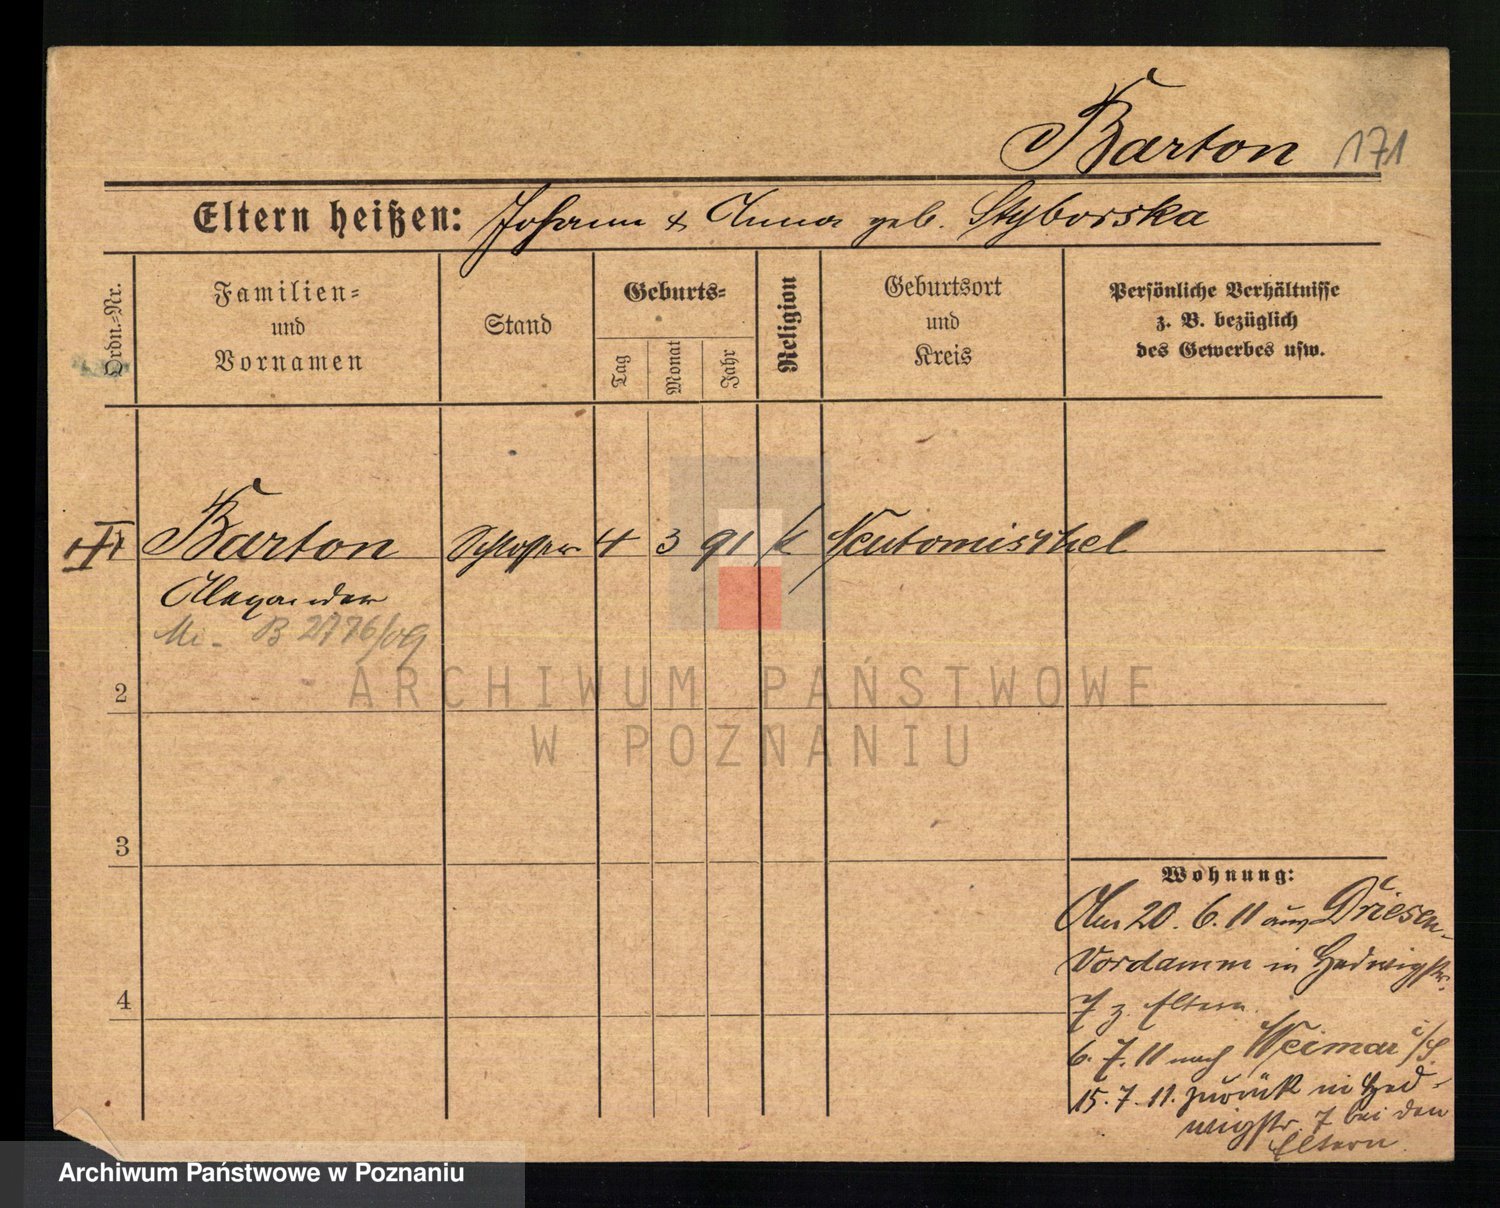 Barton 171
Eltern heißen: Johann & Anna geb. Styborska
Ordn.-Nr.
Familien-
und
Vornamen
Stand
Geburts-
Tag
Monat
Jahr
Religion
Geburtsort
und
Kreis
Persönliche Verhältnisse
z. B. bezüglich
des Gewerbes usw.
Barton Schlosser 4 3 91 k Neutomischel
Alexander
B 2776/09
2
ARCHIWUM PAŃSTWOWE
W POZNANIU
3
4
Wohnung:
Am 20. 6. 11 aus Driesen-
Vordamm in Hedwigstr.
7 z. Eltern.
6. 7. 11 nach Weimar
15. 7. 11. zurück in Hed-
wigstr. 7 bei den
Eltern.
Archiwum Państwowe w Poznaniu